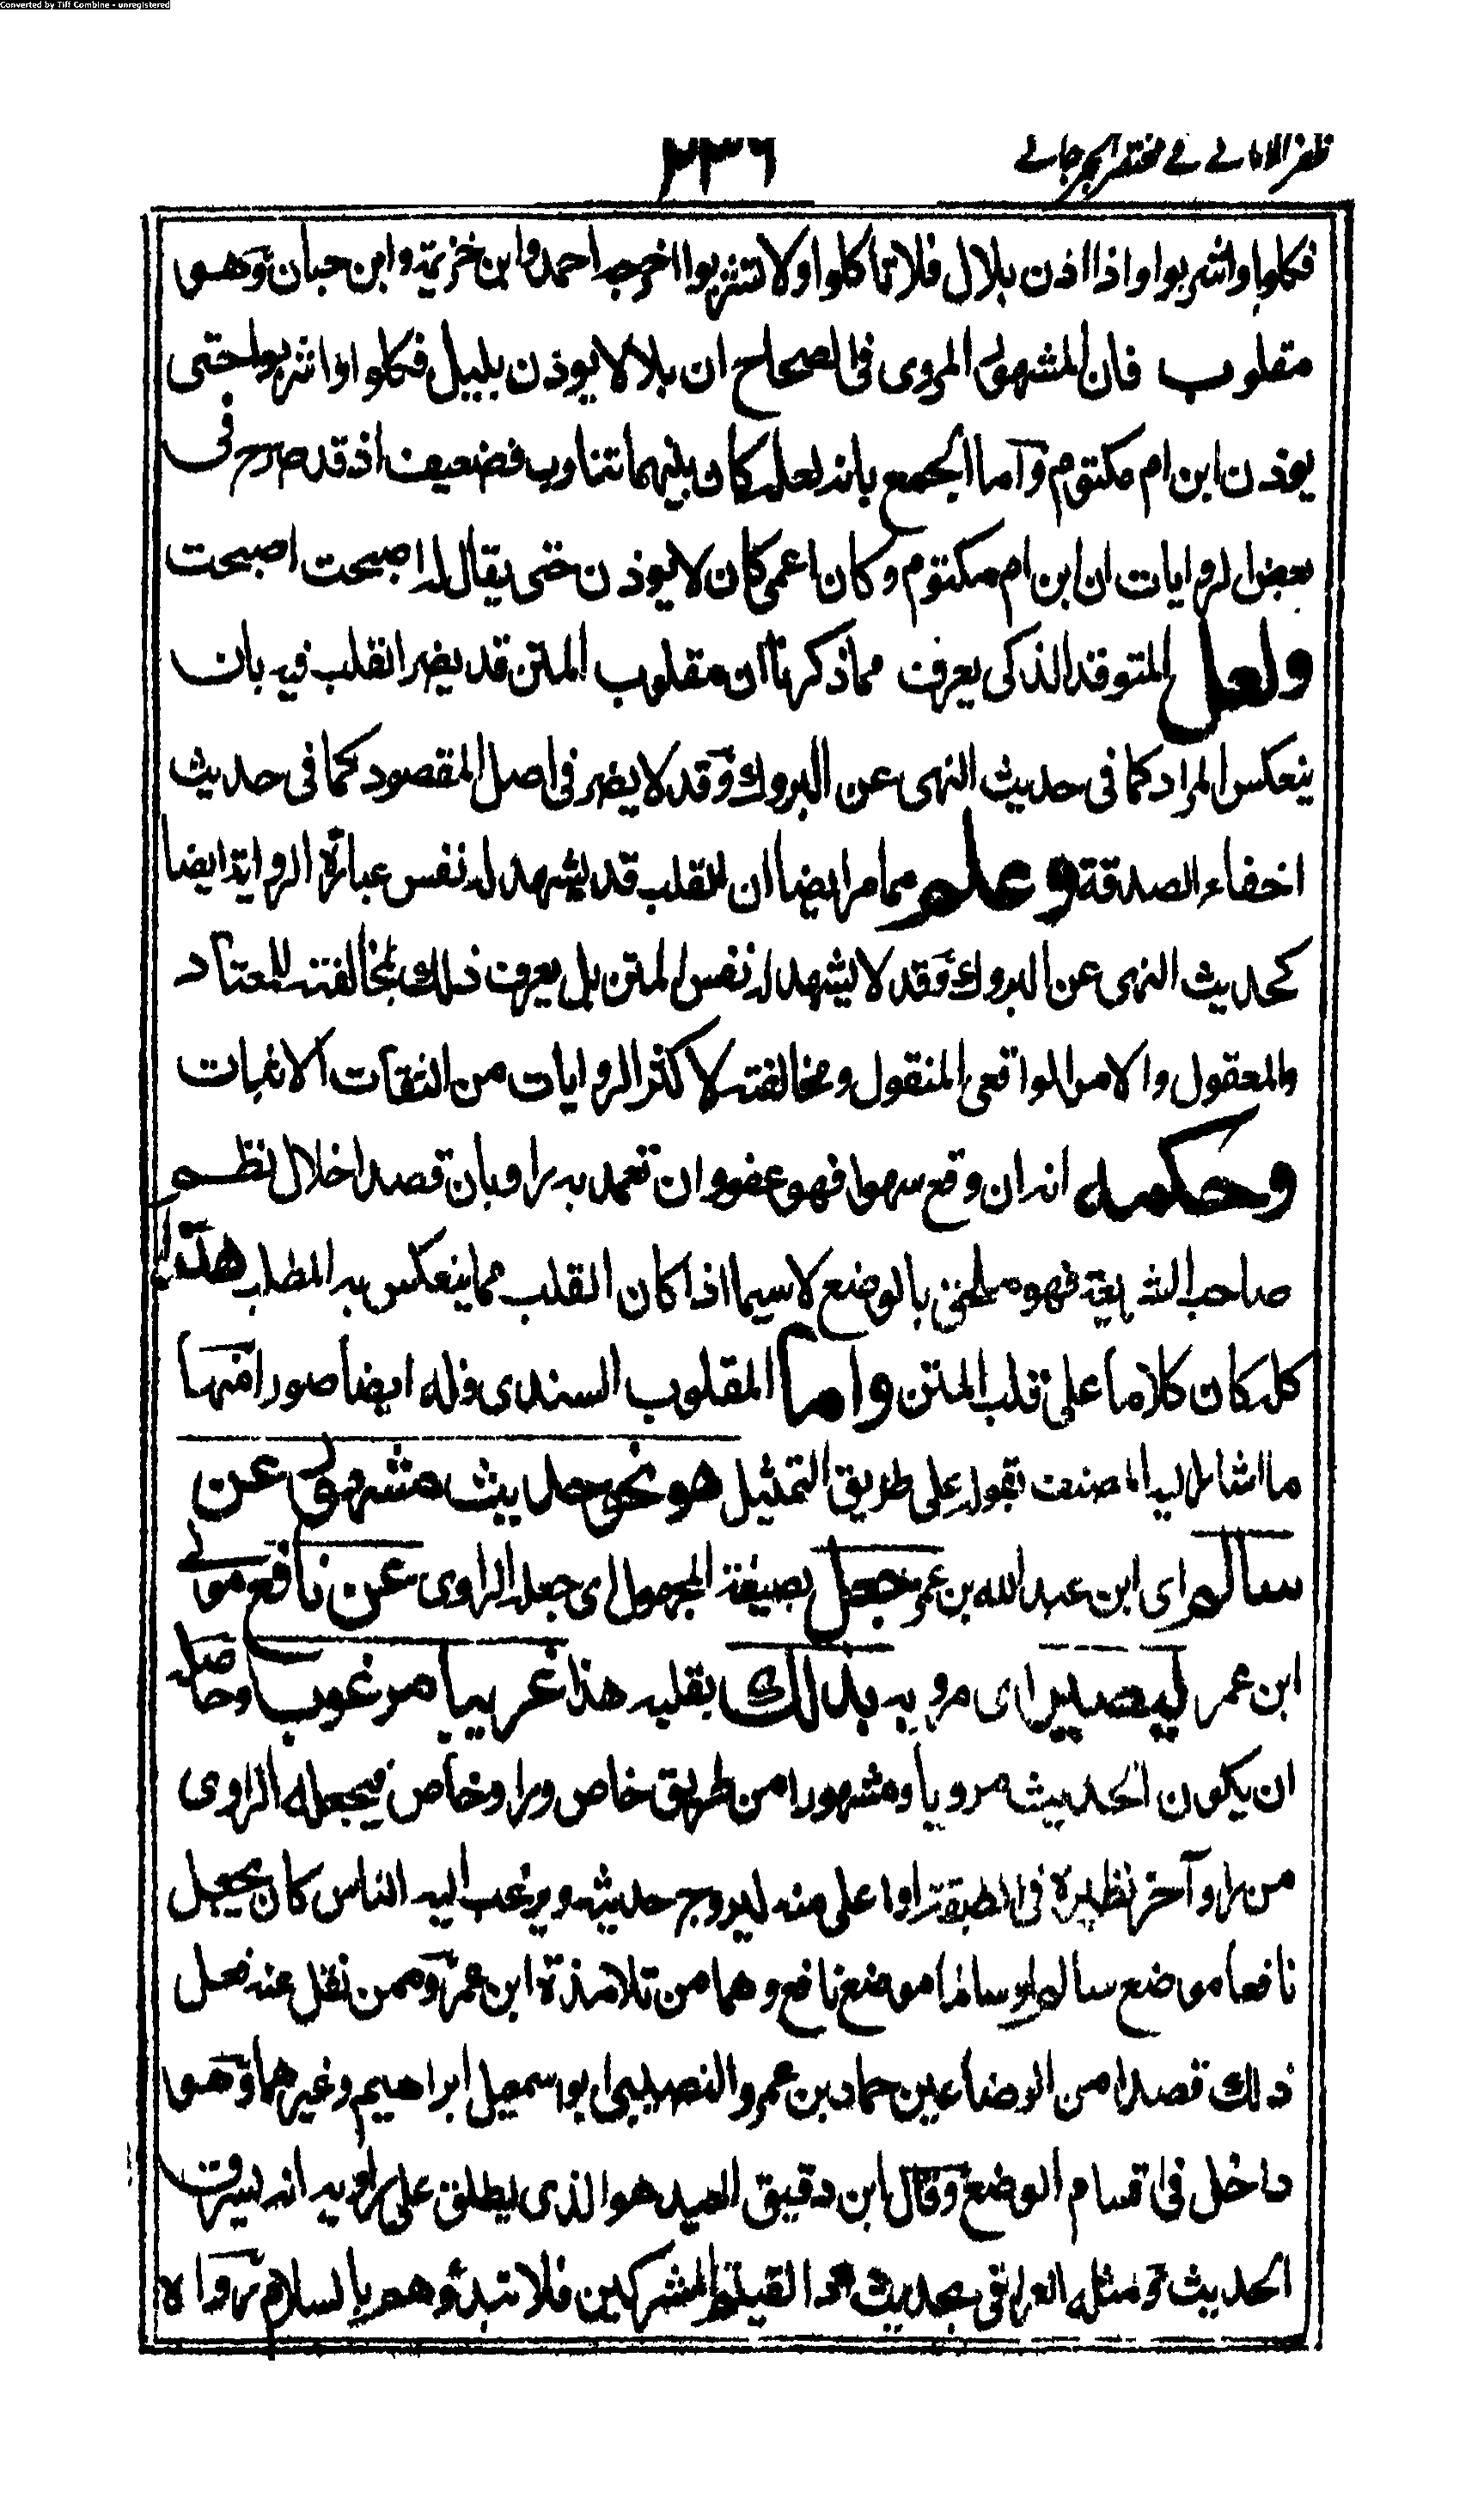 Converted by Tiff Combine - unregistered
ظفر الامانی فی مختصر الجرجانی
٢٣٦
فكلوا واشربوا واذا اذن بلال فلا تاكلوا ولا تشربوا اخرجه احمد وابن خزيمة وابن حبان وهو
مقلوب فان المشهور المروى فى الصحاح ان بلالا يوذن بليل فكلوا واشربوا حتى
يوذن ابن ام مكتوم وآما الجمع بانه لعله كان بينهما تناوب فضعيف اذ قد صرح فى
بعض الروايات ان ابن ام مكتوم وكان اعمى كان لا يوذن حتى يقال له اصبحت اصبحت
ولعل المتوقد الذكى يعرف مما ذكرنا ان مقلوب المتن قد يضر القلب فيه بان
ينعكس المراد كما فى حديث النهى عن البروك وقد لا يضر فى اصل المقصود كما فى حديث
اخفاء الصدقة وعلم مما مر ايضا ان القلب قد يشهد له نفس عبارة الرواية ايضا
كحديث النهى عن البروك وقد لا يشهد له نفس المتن بل يعرف ذلك بمخالفته للمعتاد
والمعقول والامر الواقعى المنقول ومخالفته لاكثر الروايات من الثقات الاثبات
وحكمه انه ان وقع سهوا فهو عفو وان تعمد به راو بان قصد اخلال نظم
صاحب الشريعة فهو ملحق بالوضع لا سيما اذا كان القلب مما ينعكس به المطلب هذا
كله كان كلاما على قلب المتن واما المقلوب السندى فله ايضا صور افمنها
ما اشار اليه المصنف بقوله على طريق التمثيل هو نحو حديث مشهور عن
سالم اى ابن عبد الله بن عمر جعل بصيغة المجهول اى جعله الراوى عن نافع مولى
ابن عمر ليصير اى مرويه بذلك بقلبه هذا غريبا مرغوبا وحاصله
ان يكون الحديث مرويا ومشهورا من طريق خاص وراو خاص فيجعله الراوى
من راو آخر نظيره فى الطبقة او اعلى منه ليروج حديثه ويرغب اليه الناس كان يجعل
نافعا موضع سالم او سالما موضع نافع وهما من تلامذة ابن عمر وممن نقل عنه فعل
ذلك قصدا من الوضاعين حماد بن عمرو النصيبى وابو سمعيل ابراهيم وغيرهما وهو
داخل فى اقسام الوضع وقال ابن دقيق العيد هو الذى يطلق على راويه انه يسرق
الحديث ومثله العراقى بحديث اذا لقيتم المشركين فلا تبدؤهم بالسلام رواه